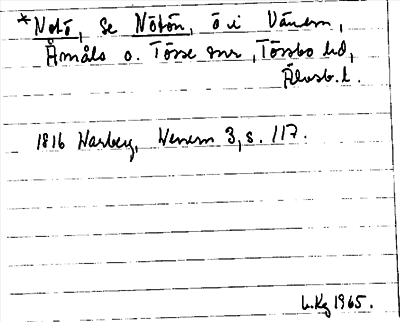 *Notö, se Nötön, ö i Vänern,
Åmåls o. Tösse snr, Tössbo hd,
Älvsb. l.
1816 Warberg, Wenern 3, s. 117.
L.Kg 1965.